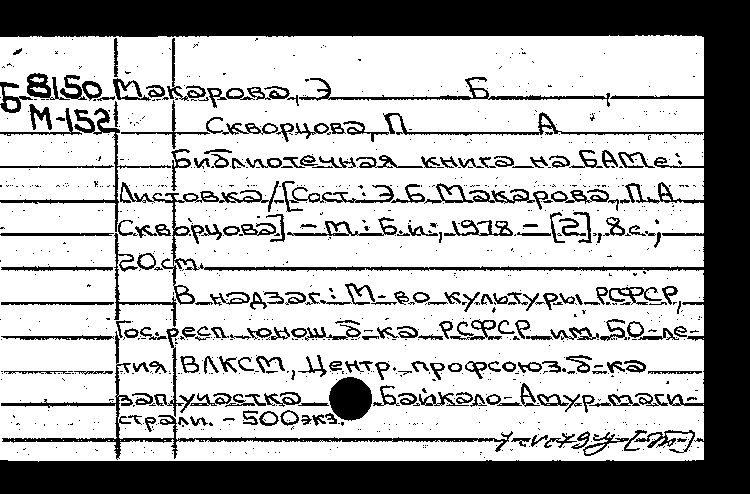 Б 8150 Макарова, Э Б ,
М-152 Скворцова, П А
Библиотечная книга на БАМе:
Листовка/[Сост.: Э.Б. Макарова, П.А.
Скворцова]. – М.: Б.и., 1978. – [2], 8с.;
20 см.
В надзаг.: М-во культуры РСФСР,
Гос. респ. юнош. б-ка РСФСР им. 50-ле-
тия ВЛКСМ, Центр. профсоюз. б-ка
зап. участка Байкало-Амур. маги-
страли. – 500 экз.